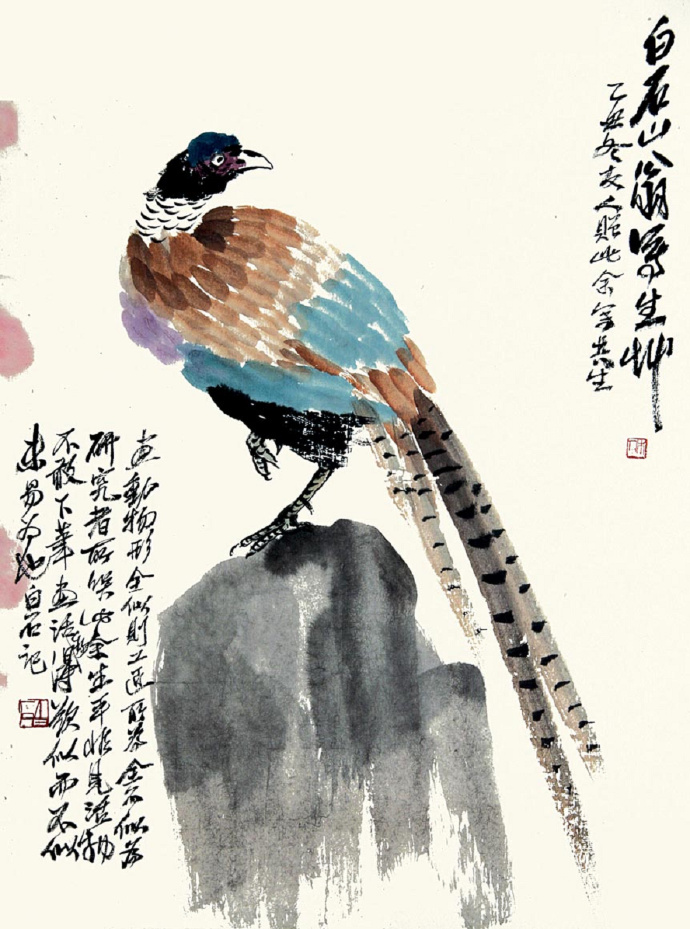 白石山翁写生册
乙丑冬友人贻此余写其生
画动物形全似则工匠所恭全不似为
研究者所误此余生平惟见活物
不敢下笔画活得欲似而不似
未易为也白石记